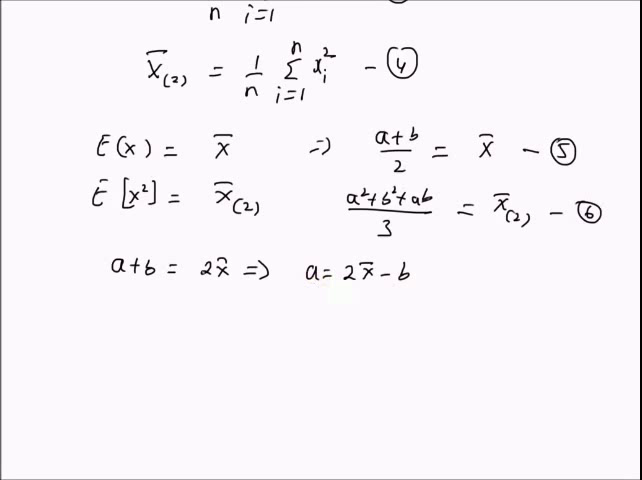 n i=1
X̄₍₂₎ = 1/n Σⁿᵢ₌₁ xᵢ² – ④
E(x) = x̄ ⇒ (a+b)/2 = x̄ – ⑤
E[x²] = x̄₍₂₎ (a²+b²+ab)/3 = x̄₍₂₎ – ⑥
a+b = 2x̄ ⇒ a = 2x̄ – b